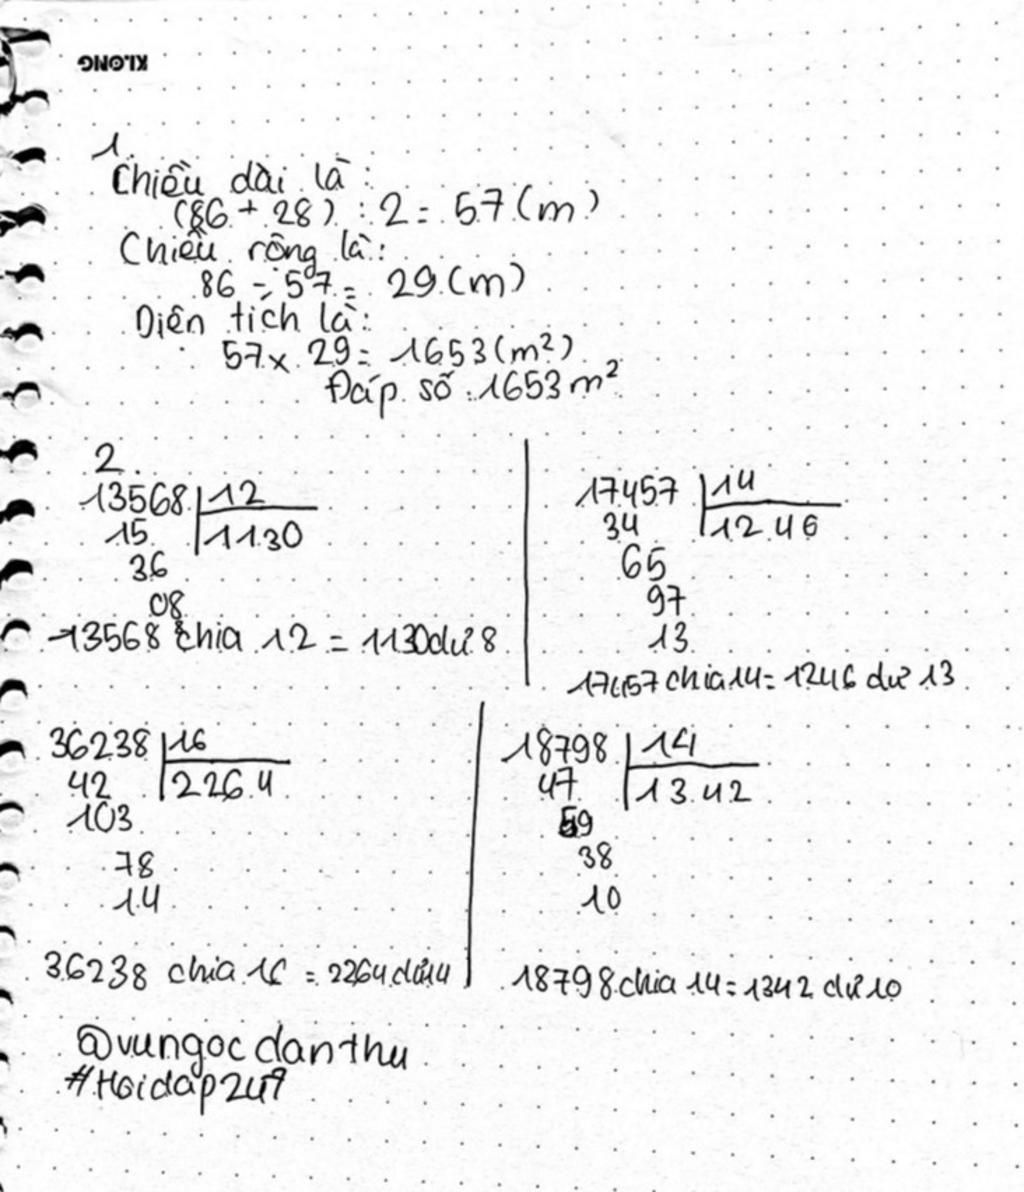 KLONG
1.
Chiều dài là:
(86 + 28) : 2 = 57 (m)
Chiều rộng là:
86 - 57 = 29 (m)
Diện tích là:
57 x 29 = 1653 (m²)
Đáp số : 1653 m²
2.
13568 12
15 1130
36
08
13568 chia 12 = 1130 dư 8
17457 14
34 1246
65
97
13
17457 chia 14 = 1246 dư 13
36238 16
42 2264
103
78
14
36238 chia 16 = 2264 dư 14
18798 14
47 1342
59
38
10
18798 chia 14 = 1342 dư 10
@vungocdanthu
#Hoidap247